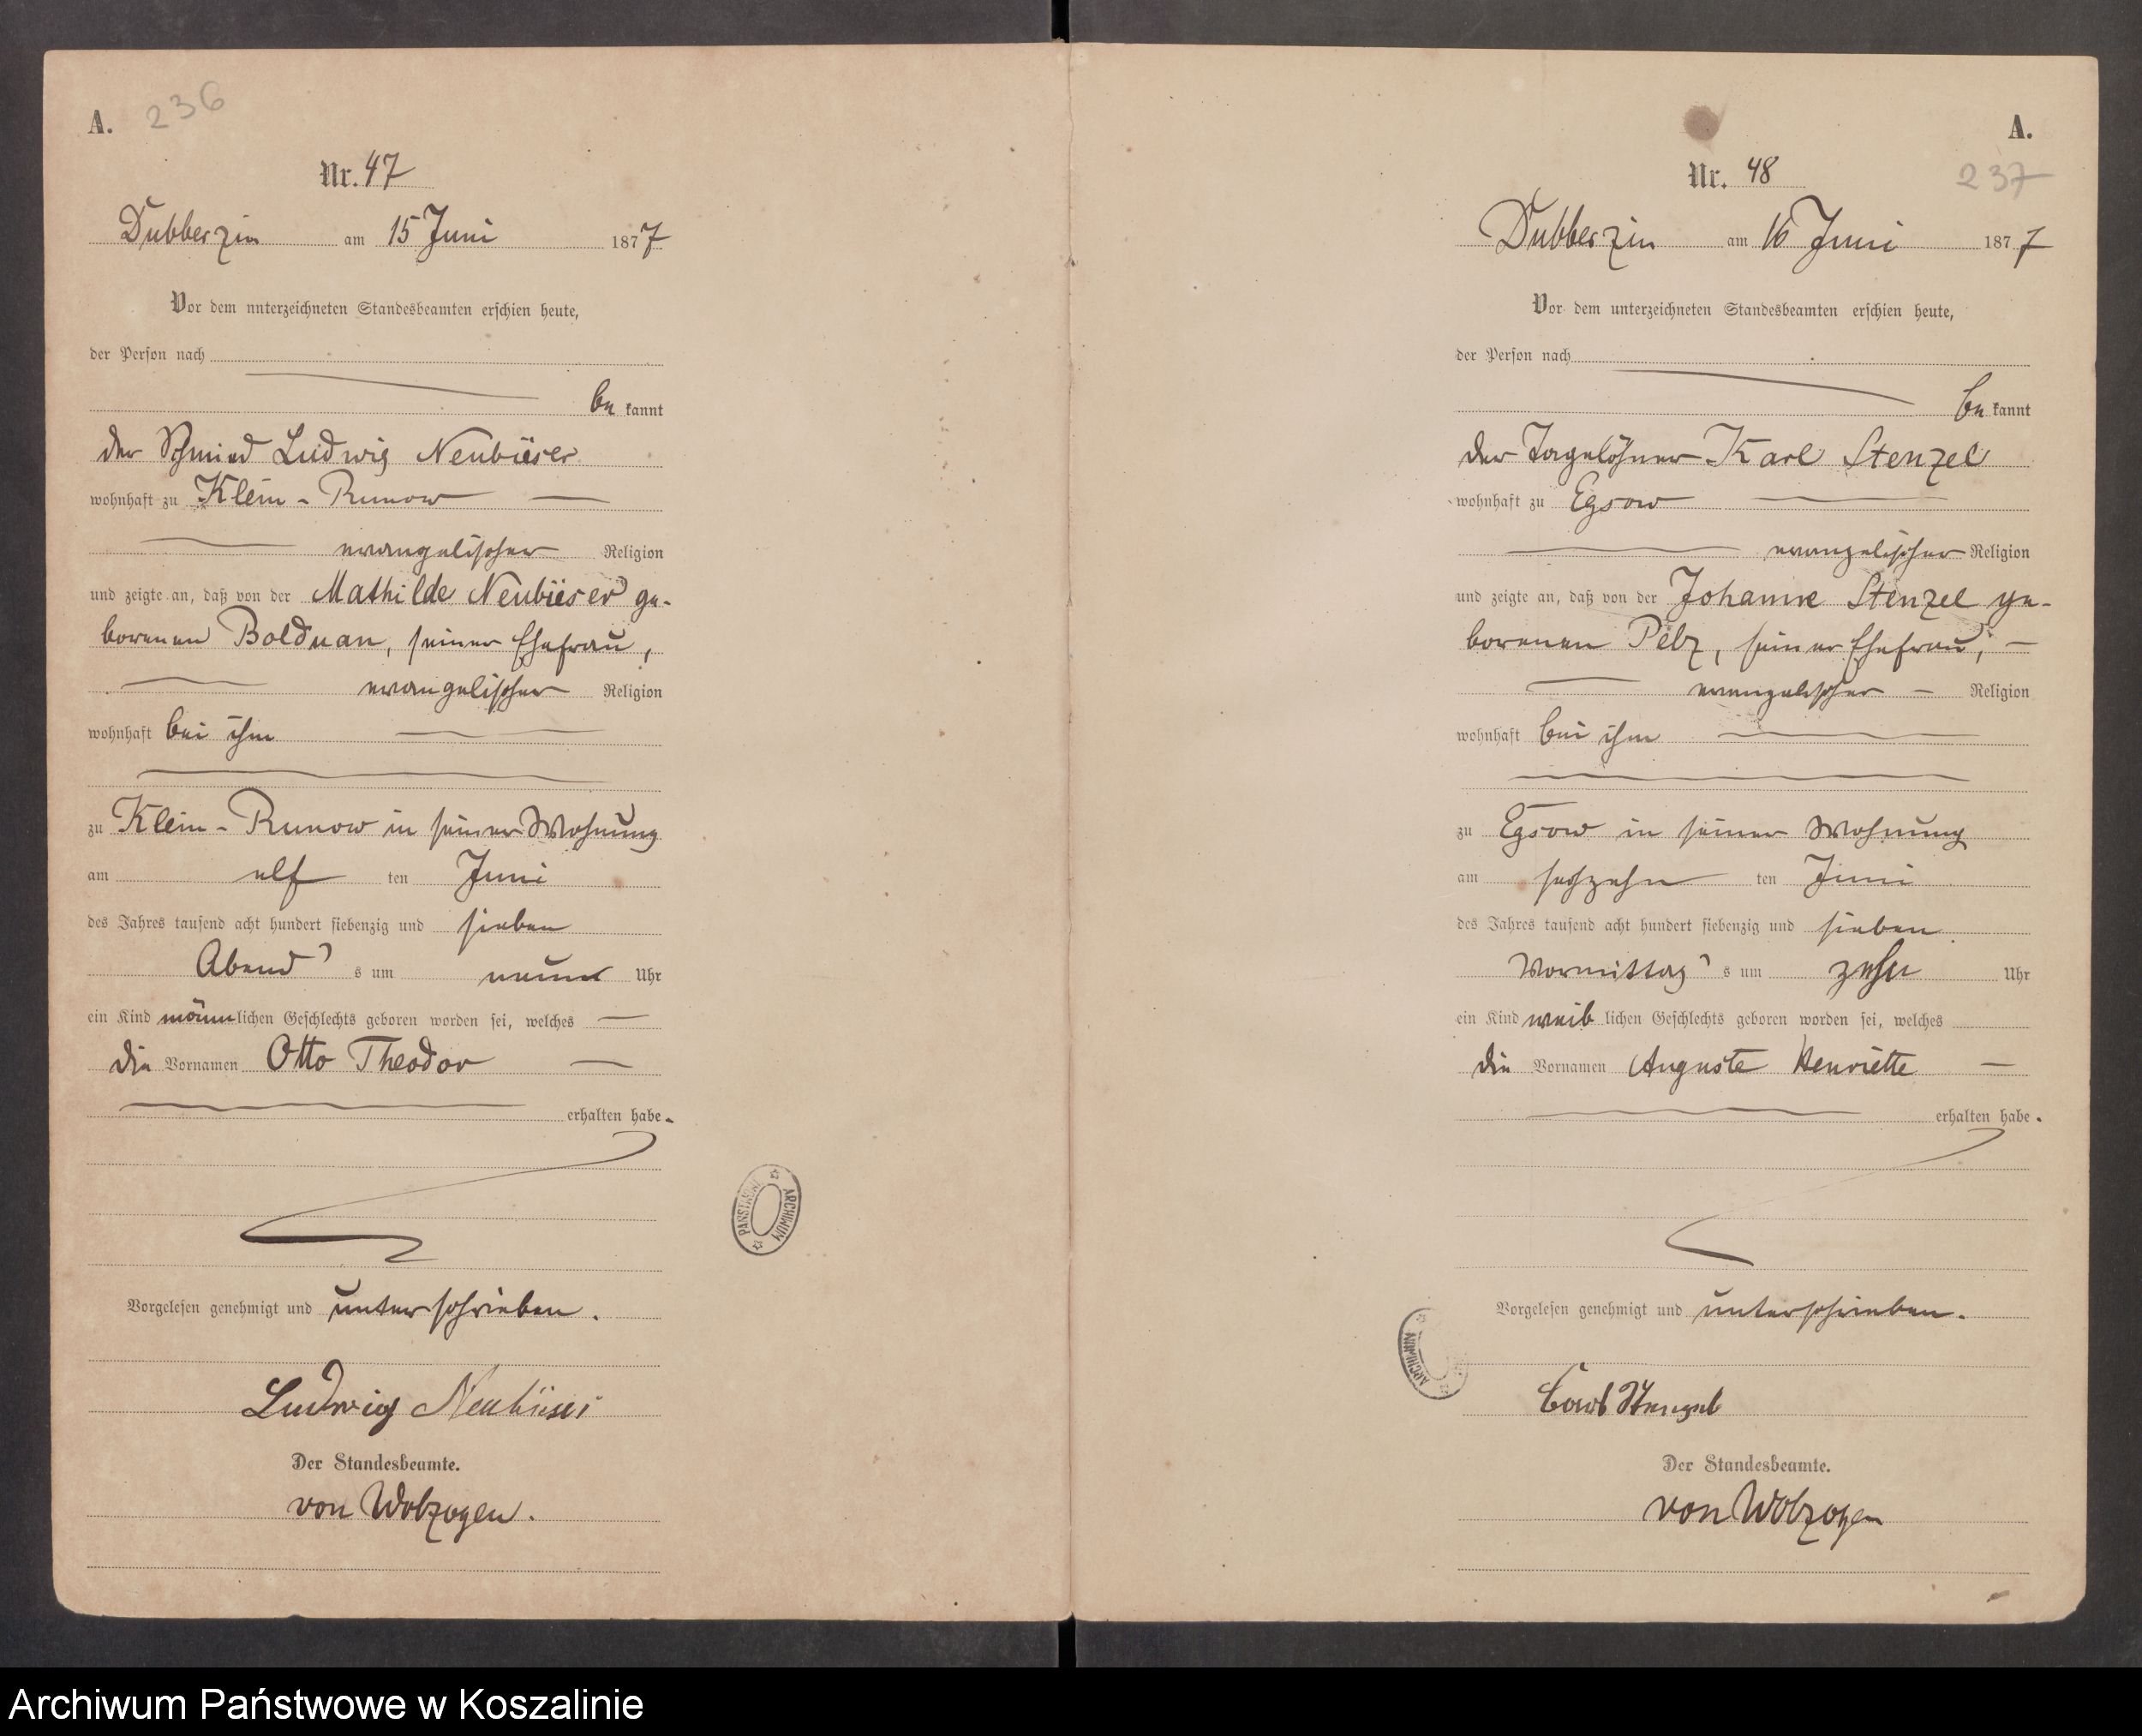 A. 236
Nr. 47
Dubberzin am 15 Juni 1877
Vor dem unterzeichneten Standesbeamten erschien heute,
der Person nach
be kannt
der Schmied Ludwig Neubüser
wohnhaft zu Klein-Runow
evangelischer Religion
und zeigte an, daß von der Mathilde Neubüser ge-
borenen Bolduan, seiner Ehefrau,
evangelischer Religion
wohnhaft bei ihm
zu Klein-Runow in seiner Wohnung
am elf ten Juni
des Jahres tausend acht hundert siebenzig und sieben
Abend s um neun Uhr
ein Kind männlichen Geschlechts geboren worden sei, welches
die Vornamen Otto Theodor
erhalten habe.
Vorgelesen genehmigt und unterschrieben.
Ludwig Neubüser
Der Standesbeamte.
von Wolzogen.
ARCHIWUM PAŃSTWOWE
A.
Nr. 48
237
Dubberzin am 16 Juni 1877
Vor dem unterzeichneten Standesbeamten erschien heute,
der Person nach
be kannt
der Tagelöhner Karl Stenzel
wohnhaft zu Egsow
evangelischer Religion
und zeigte an, daß von der Johanne Stenzel ge-
borenen Pelz, seiner Ehefrau,
evangelischer Religion
wohnhaft bei ihm
zu Egsow in seiner Wohnung
am sechzehn ten Juni
des Jahres tausend acht hundert siebenzig und sieben
Vormittag s um zehn Uhr
ein Kind weib lichen Geschlechts geboren worden sei, welches
die Vornamen Auguste Henriette
erhalten habe.
Vorgelesen genehmigt und unterschrieben.
ARCHIWUM
Carl Stenzel
Der Standesbeamte.
von Wolzogen
Archiwum Państwowe w Koszalinie